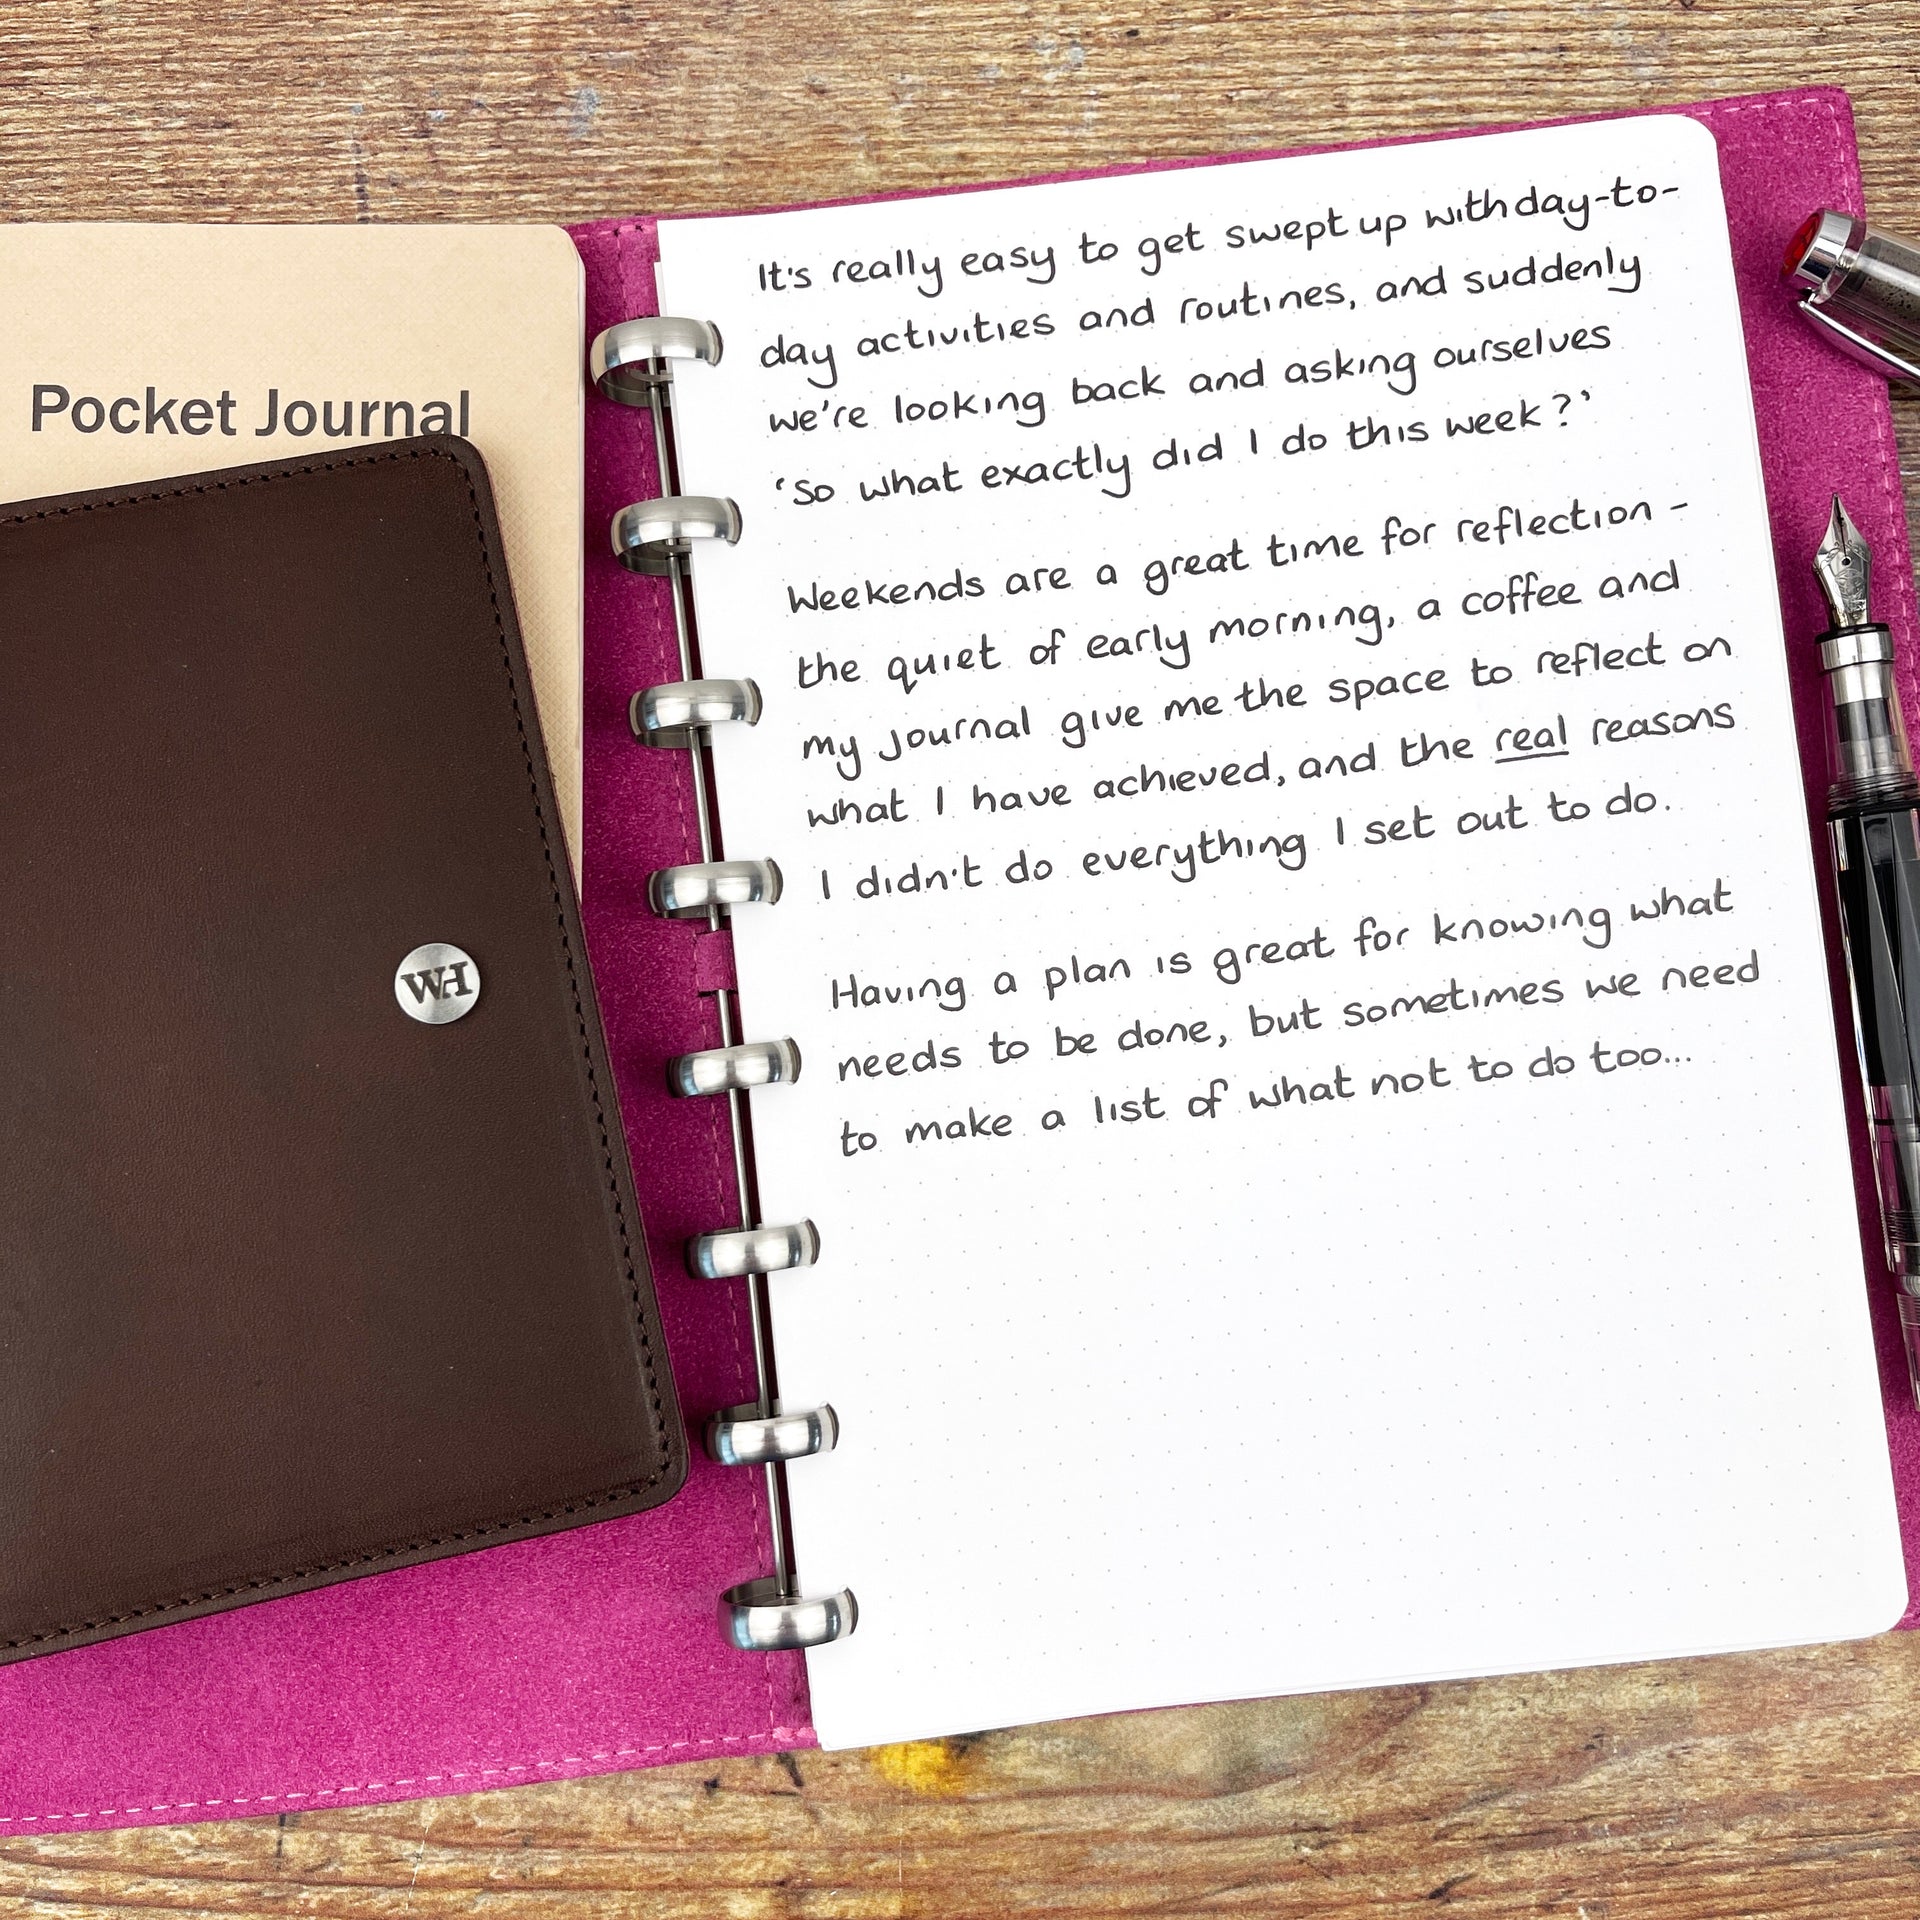 Pocket Journal
WH
It's really easy to get swept up with day-to-
day activities and routines, and suddenly
we're looking back and asking ourselves
'So what exactly did I do this week?'
Weekends are a great time for reflection -
the quiet of early morning, a coffee and
my journal give me the space to reflect on
what I have achieved, and the real reasons
I didn't do everything I set out to do.
Having a plan is great for knowing what
needs to be done, but sometimes we need
to make a list of what not to do too...